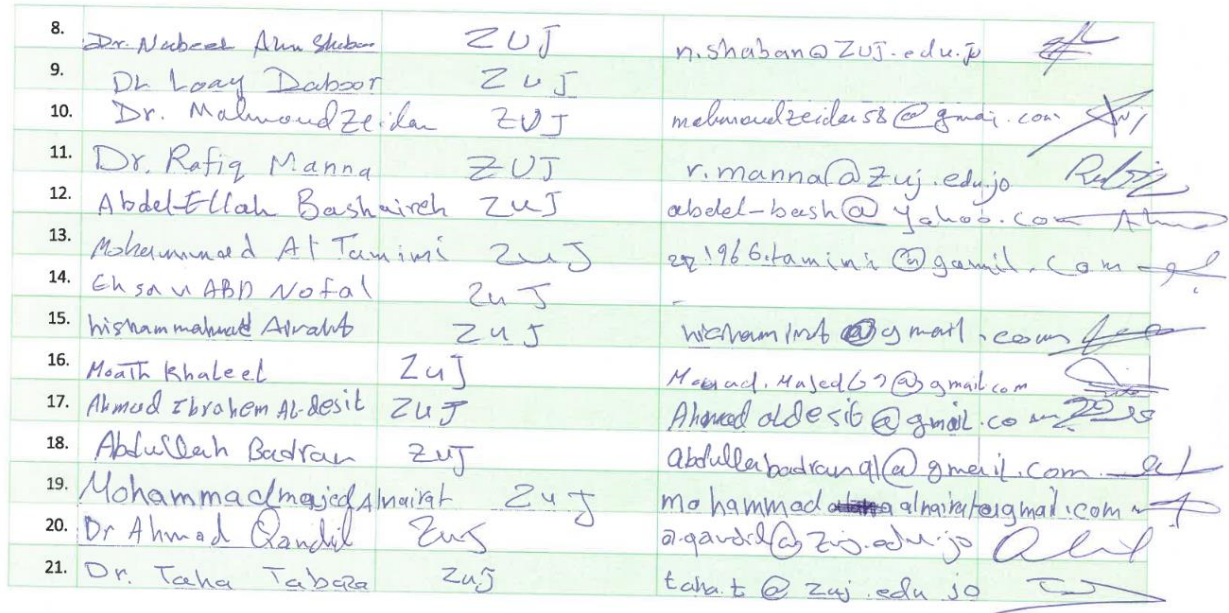 8. Dr. Nabeel Abu Shaban ZUJ n.shaban@ZUJ.edu.jo
9. Dr. Loay Daboor ZUJ
10. Dr. Mahmoud Zeidan ZUJ mahmoudzeidan58@gmai.com
11. Dr. Rafiq Manna ZUJ r.manna@zuj.edu.jo
12. Abdel-Ellah Bashaireh ZUJ abdel-bash@yahoo.com
13. Mohammad Al Tamimi ZuJ
14. Ehsan ABD Nofal ZuJ -
15. hisham mahmud ZuJ
16. Moath Khaleel ZuJ
17. Ahmad Ibrahem Al-desit ZuJ Ahmad aldesit@gmail.com
18. Abdullah Badran ZuJ abdullabadran91@gmail.com
19. Mohammad majed Alnairat ZuJ mohammad alnairat@gmail.com
20. Dr Ahmad Qandil ZuJ a.qandil@zuj.edu.jo
21. Dr. Taha Tabaza ZuJ taha.t@zuj.edu.jo